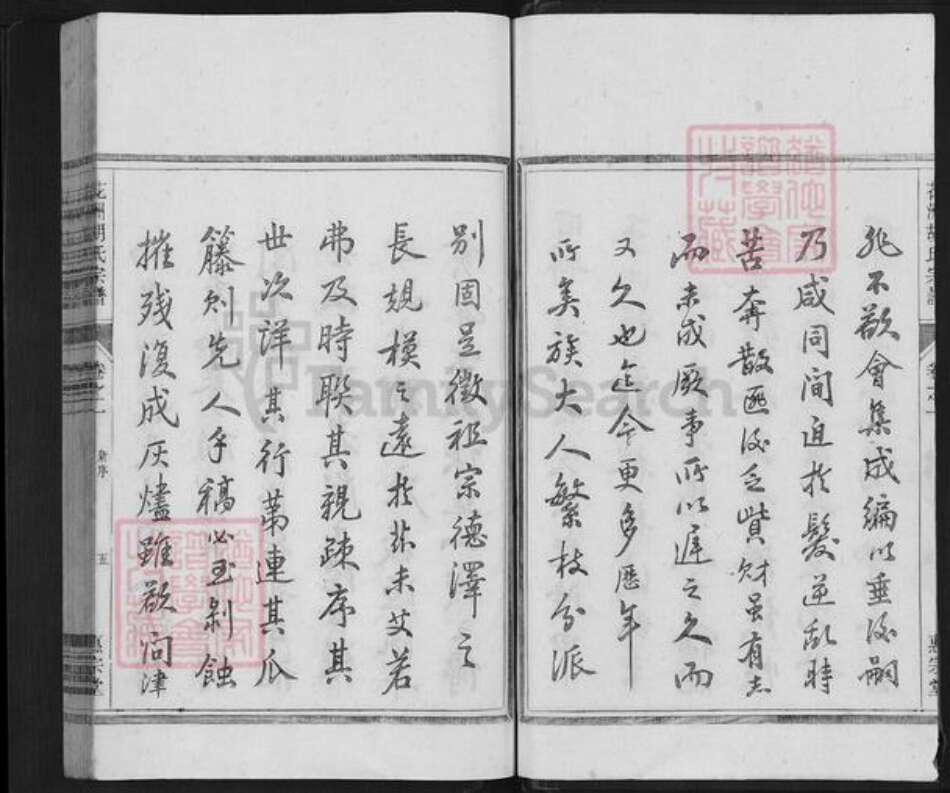 非不欲會集成編以垂後嗣
乃咸同間迫於髮逆亂時
苦奔散匪後乏貲財虽有志
而未成厥事所以遲之久而
又久也迄今更多歷年
所矣族大人繁枝分派
別固是徵祖宗德澤之
長規模之遠於茲未艾若
弗及時聯其親疎序其
世次詳其行第連其瓜
籐則先人手稿必至剝蝕
摧残復成灰燼雖欲问津
花洲胡氏宗譜
卷之一
新序
五
惠宗堂
FamilySearch